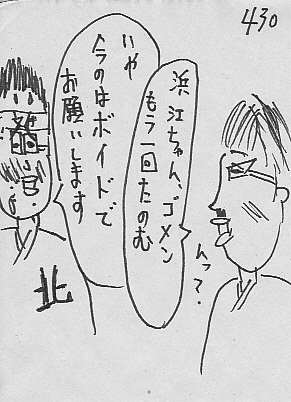 430
浜江ちゃん、ゴメン
もう一回たのむ
んって?
いや
今のはボイドで
お願いします
北